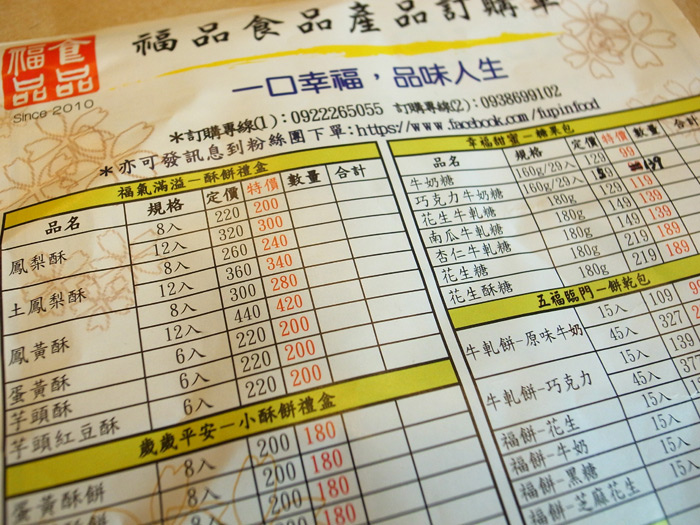 福品食品產品訂購單
食品福品
Since 2010
一口幸福，品味人生
＊訂購專線(1)：0922265055 訂購專線(2)：0938699102
＊亦可發訊息到粉絲團下單：https://www.facebook.com/fupinfood
福氣滿溢－酥餅禮盒
品名 規格 定價 特價 數量 合計
鳳梨酥 8入 220 200
12入 320 300
土鳳梨酥 8入 260 240
12入 360 340
鳳黃酥 8入 300 280
12入 440 420
蛋黃酥 6入 220 200
芋頭酥 6入 220 200
芋頭紅豆酥 6入 220 200
歲歲平安－小酥餅禮盒
蛋黃酥餅 8入 200 180
8入 200 180
200 180
200 180
幸福甜蜜－糖果包
品名 規格 定價 特價 數量 合計
牛奶糖 160g/29入 129 99
巧克力牛奶糖 160g/29入
花生牛軋糖 180g 129 119
南瓜牛軋糖 180g 149 139
杏仁牛軋糖 180g 149 139
花生糖 180g 219 189
花生酥糖 180g 219 189
五福臨門－餅乾包
牛軋餅-原味牛奶 15入 109
45入 327
牛軋餅-巧克力 15入 139
45入
福餅-花生 15入
福餅-牛奶 15入
福餅-黑糖 15入
福餅-芝麻花生 15入